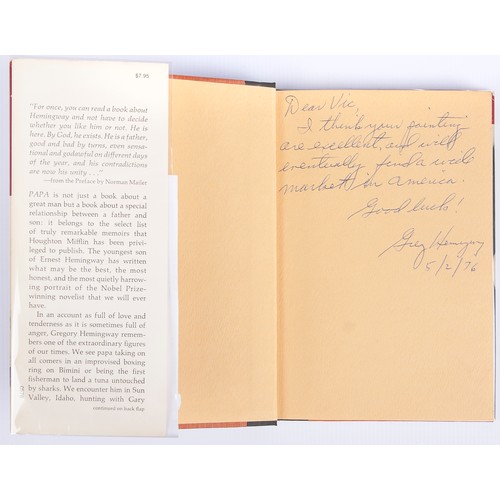 $7.95
"For once, you can read a book about
Hemingway and not have to decide
whether you like him or not. He is
here. By God, he exists. He is a father,
good and bad by turns, even sensa-
tional and godawful on different days
of the year, and his contradictions
are now his unity . . ."
—from the Preface by Norman Mailer
PAPA is not just a book about a
great man but a book about a special
relationship between a father and
son; it belongs to the select list
of truly remarkable memoirs that
Houghton Mifflin has been privi-
leged to publish. The youngest son
of Ernest Hemingway has written
what may be the best, the most
honest, and the most quietly harrow-
ing portrait of the Nobel Prize-
winning novelist that we will ever
have.
In an account as full of love and
tenderness as it is sometimes full of
anger, Gregory Hemingway remem-
bers one of the extraordinary figures
of our times. We see papa taking on
all comers in an improvised boxing
ring on Bimini or being the first
fisherman to land a tuna untouched
by sharks. We encounter him in Sun
Valley, Idaho, hunting with Gary
continued on back flap
Dear Vic,
I think your painting
are excellent, and will
eventually find a wide
market in America.
Good luck!
Greg Hemingway
5/2/76